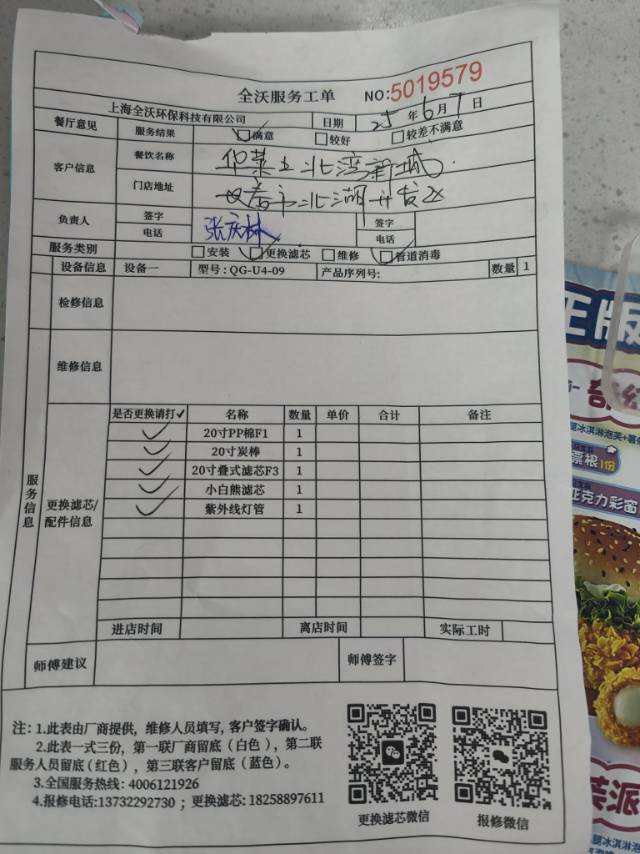 全沃服务工单 NO:5019579
上海全沃环保科技有限公司 日期 25年6月7日
餐厅意见 服务结果 满意 较好 较差不满意
客户信息 餐饮名称 华莱士北湾新城
门店地址 北湖开发区
负责人 签字 张庆林 签字
电话 电话
服务类别 安装 更换滤芯 维修 管道消毒
设备信息 设备一 型号:QG-U4-09 产品序列号: 数量 1
检修信息
维修信息
服务信息
更换滤芯/配件信息
是否更换请打✓ 名称 数量 单价 合计 备注
✓ 20寸PP棉F1 1
✓ 20寸炭棒 1
✓ 20寸叠式滤芯F3 1
✓ 小白熊滤芯 1
✓ 紫外线灯管 1
进店时间 离店时间 实际工时
师傅建议 师傅签字
注:1.此表由厂商提供,维修人员填写,客户签字确认。
2.此表一式三份,第一联厂商留底(白色),第二联
服务人员留底(红色),第三联客户留底(蓝色)。
3.全国服务热线:4006121926
4.报修电话:13732292730;更换滤芯:18258897611
更换滤芯微信 报修微信
王版
票根1份
亚克力彩窗
冰淇淋泡芙+薯